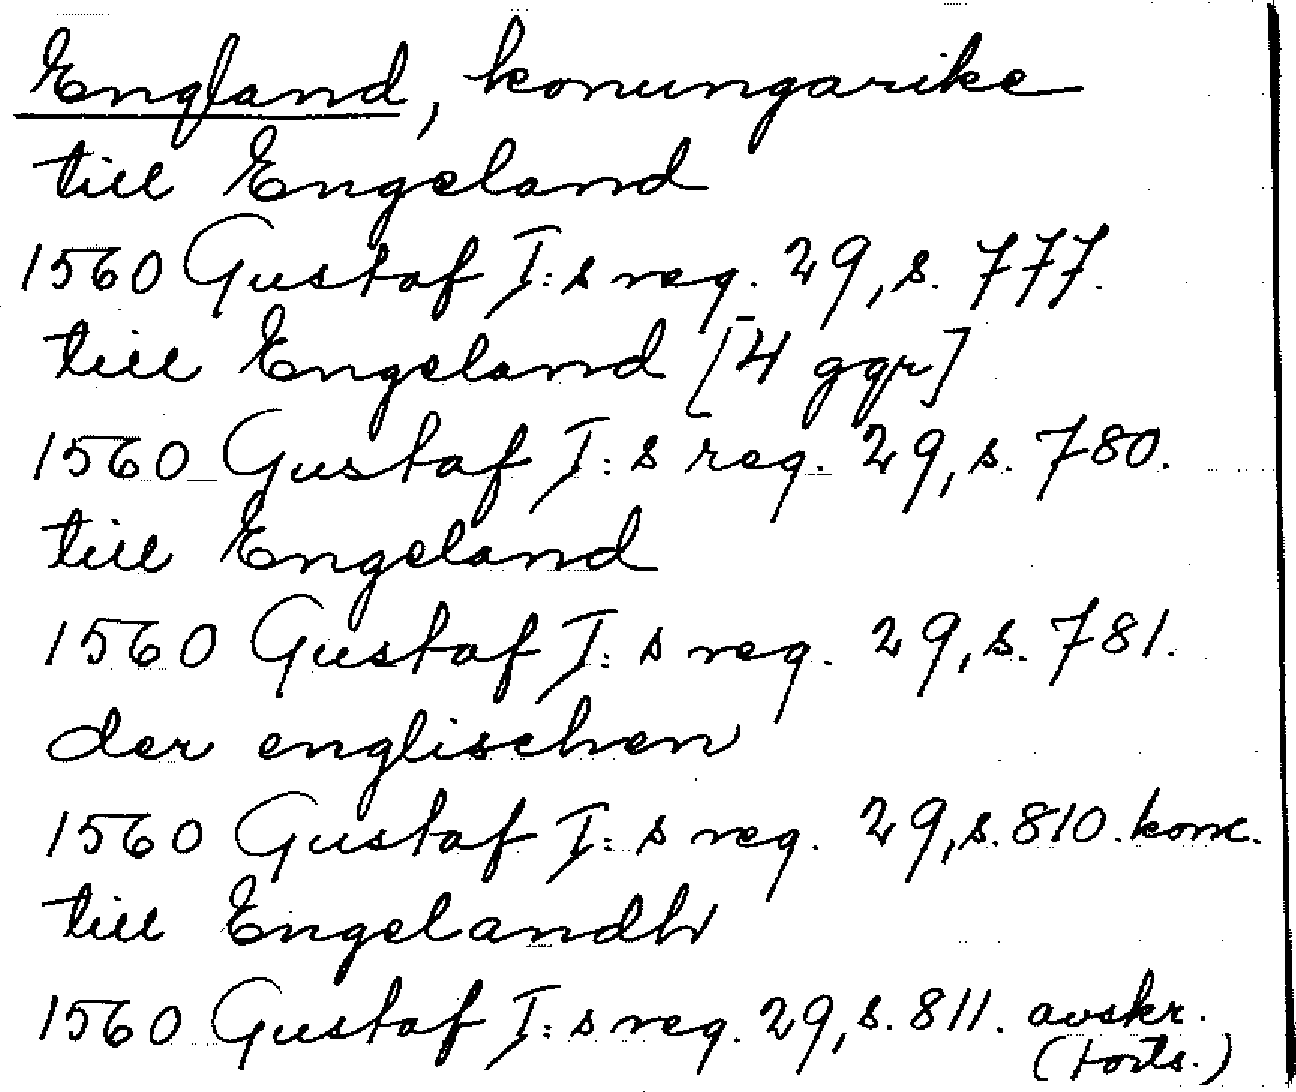 England, konungarike
till Engeland
1560 Gustaf I:s reg. 29, s. 777.
till Engeland [4 ggr]
1560 Gustaf I:s reg. 29, s. 780.
till Engeland
1560 Gustaf I:s reg. 29, s. 781.
der englischen
1560 Gustaf I:s reg. 29, s. 810. konc.
till Engelandh
1560 Gustaf I:s reg. 29, s. 811. avskr.
(forts.)